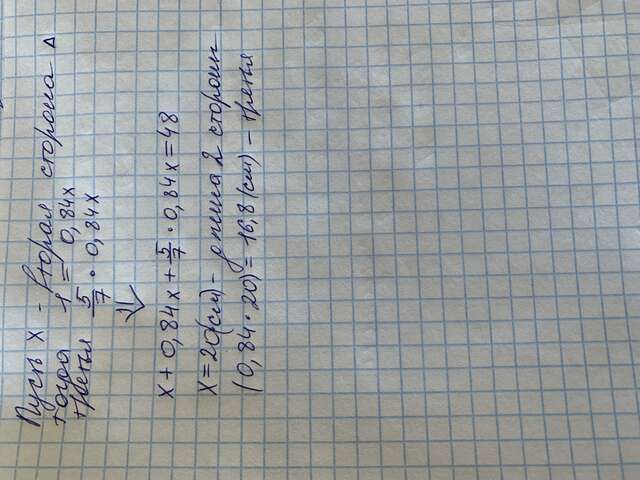 Пусть X - вторая сторона Δ
тогда 1 = 0,84x
третья 5/7 · 0,84x
⇓
x + 0,84x + 5/7 · 0,84x = 48
X = 20(см) - длина 2 стороны
(0,84 · 20) = 16,8 (см) - третья